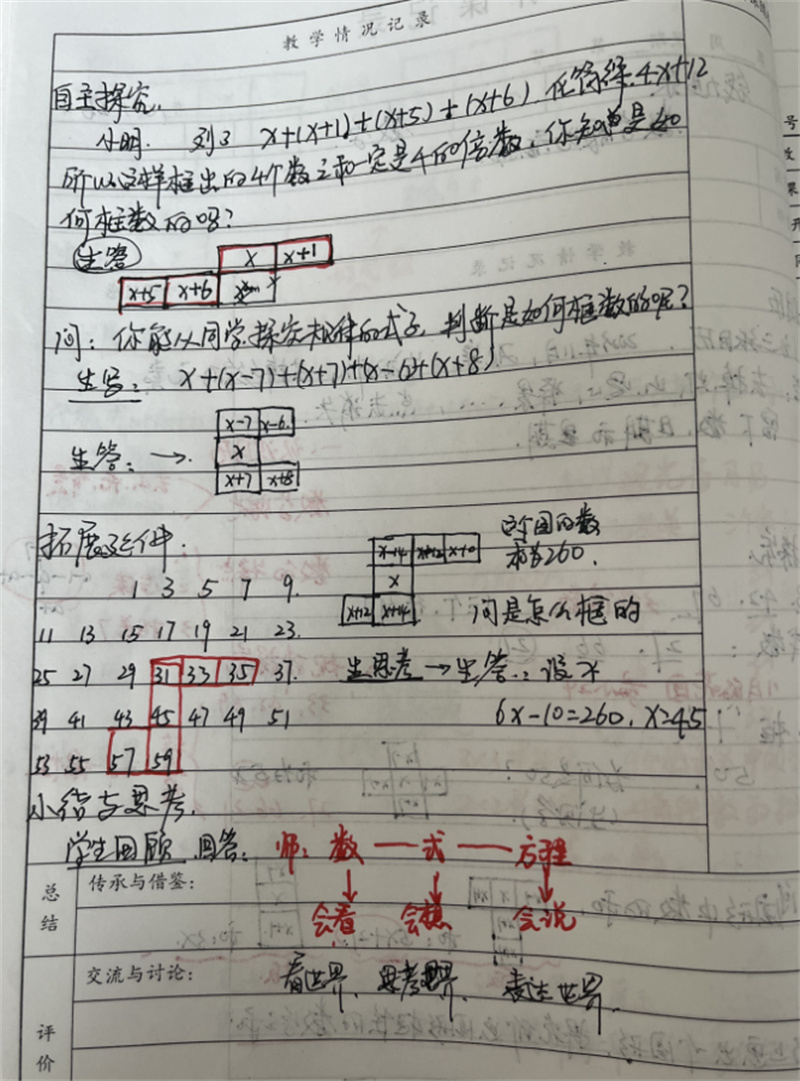 教学情况记录
自主探究.
小明. 列3 x+(x+1)+(x+5)+(x+6). 化简得: 4x+12
所以这样框出的4个数之和一定是4的倍数,你知道是如
何框数的吗?
生答
x x+1
x+5 x+6
问: 你能从同学探究规律的式子, 判断是如何框数的呢?
生写: x+(x-7)+(x+7)+(x-6)+(x+8)
x-7 x-6
生答: → x
x+7 x+8
拓展延伸:
这个图的数
和为260.
x-14 x-12 x-10
x
x+12 x+14
问是怎么框的
1 3 5 7 9.
11 13 15 17 19 21 23.
25 27 29 31 33 35 37.
生思考 → 生答: 设x
39 41 43 45 47 49 51
6x-10=260, x=45
53 55 57 59
小结与思考.
学生回顾, 回答: 师: 数 — 式 — 方程
总结
传承与借鉴:
会看 会想 会说
评价
交流与讨论:
看世界, 思考世界, 表达世界.
号